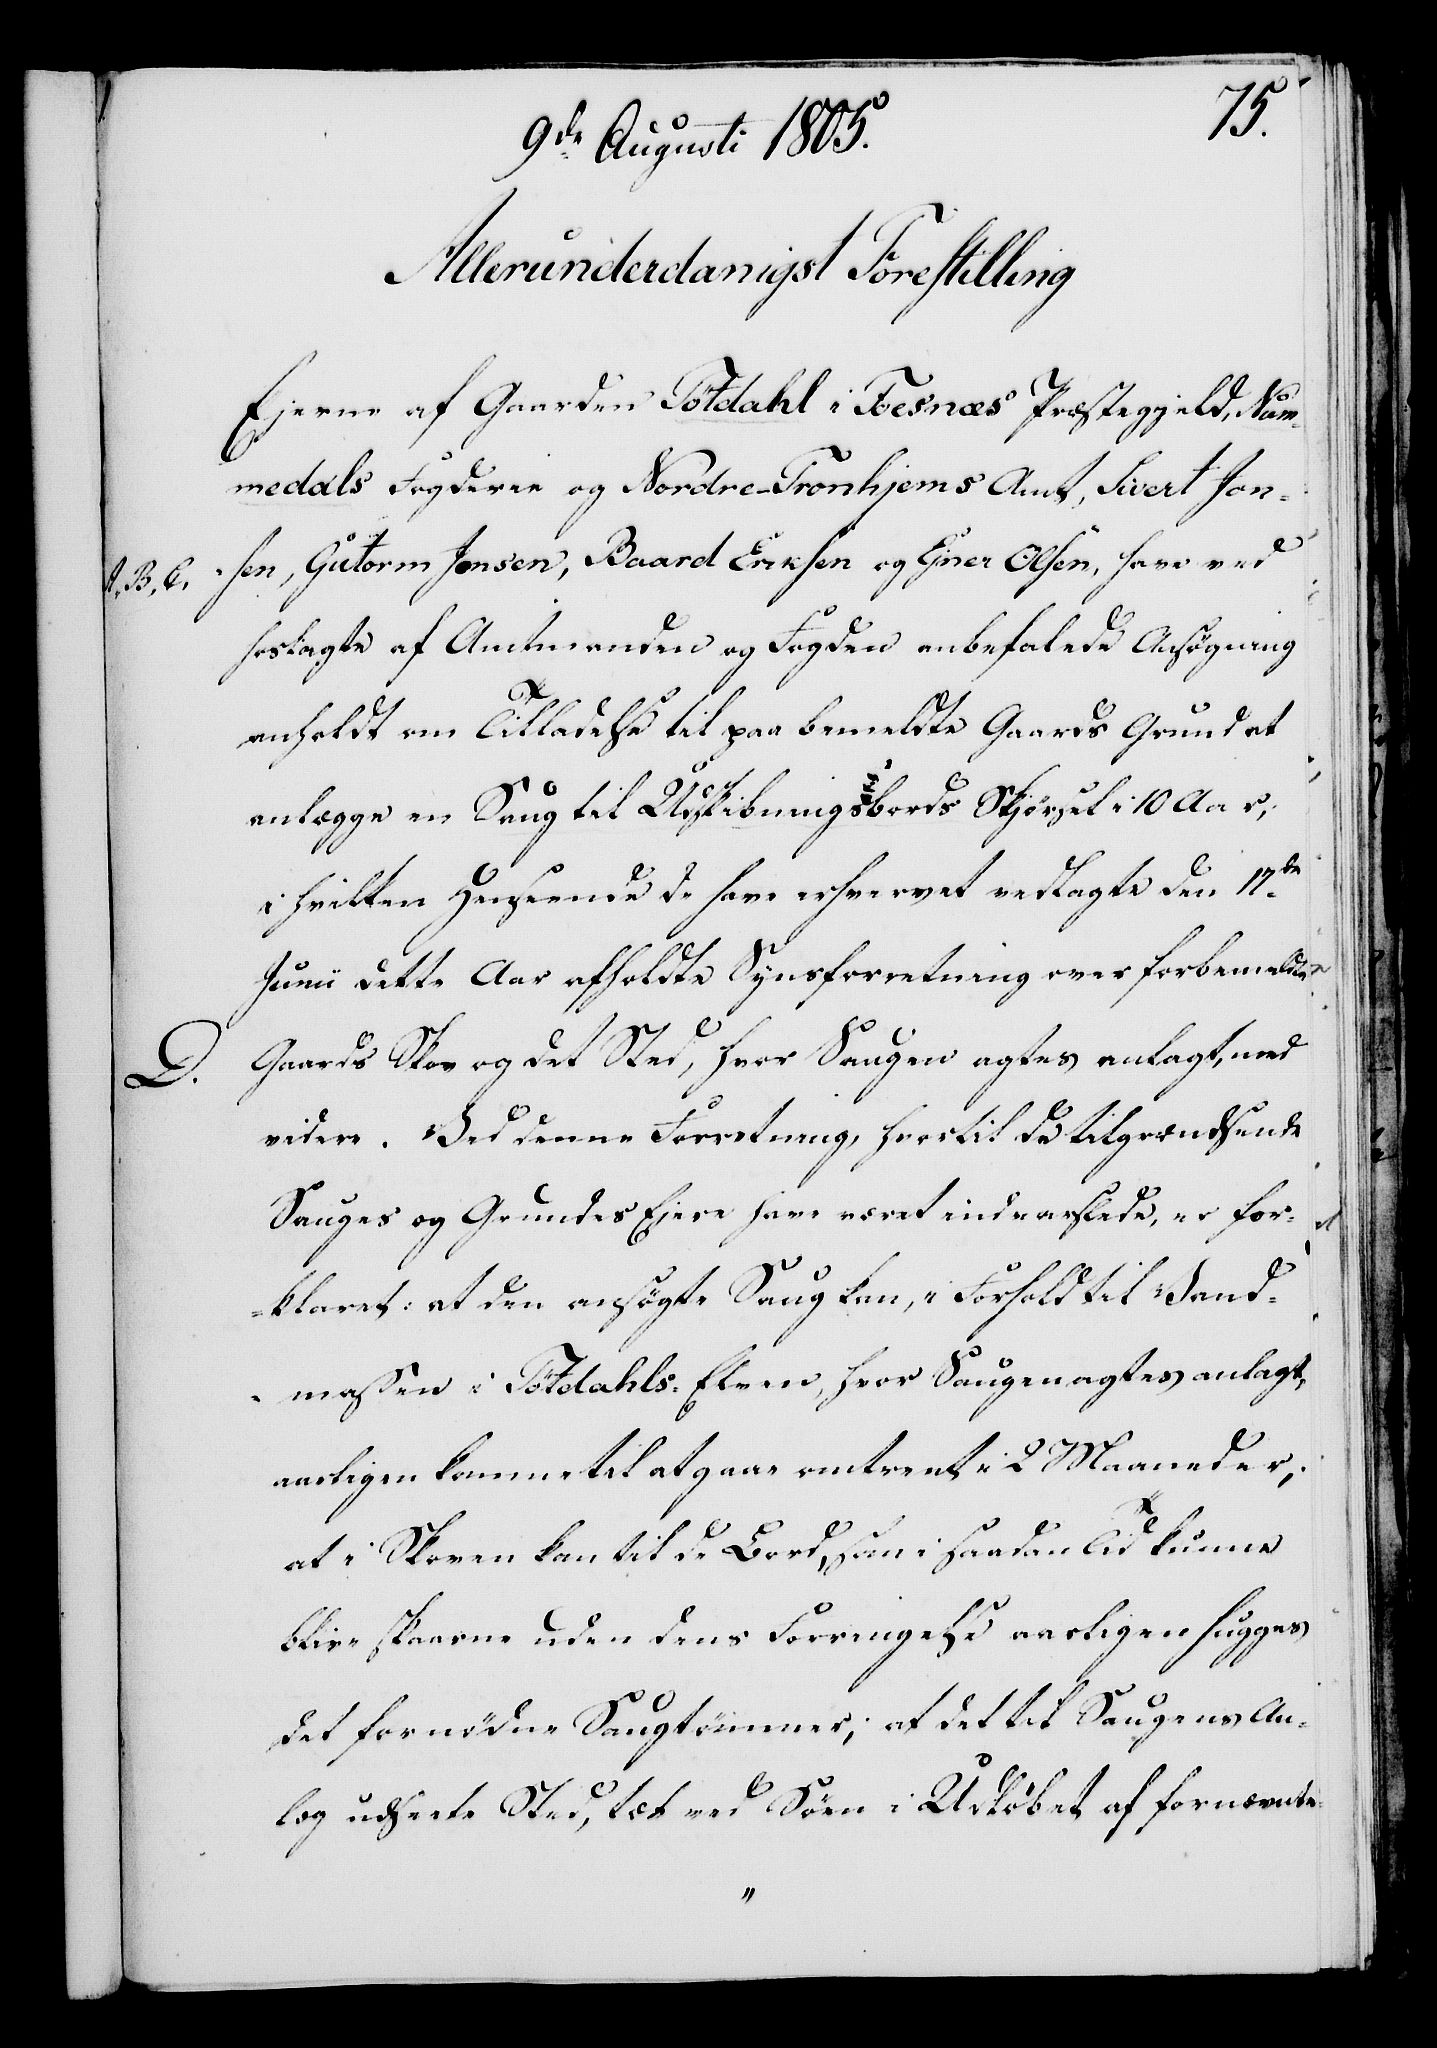 75.
9de Augusti 1805.
Allerunderdanigst Forestilling
Ejerne af Gaarden Tötdahl i Foesnæs Præstegjeld, Num-
medals Fogderie og Nordre-Tronhjems Amt, Sivert Jon-
A. B. C. -sen, Gutorm Jonsen, Baard Eriksen og Ejner Olsen, have ved
hoslagte af Amtmanden og Fogden anbefalede Ansøgning
anholdt om Tilladelse til paa bemeldte Gaards Grund at
anlægge en Saug til Udskibningsbords Skjørsel i 10 Aar;
i hvilken Henseende de have erhvervet vedlagte den 17de
Junii dette Aar afholdte Synsforretning over forbemeldte
D. Gaards Skov og det Sted, hvor Saugen agtes anlagt, med
videre. Ved denne Forretning, hvortil de tilgrændsende
Sauges og Grundes Ejere have været indvarslede, er for-
-klaret: at den ansøgte Saug kan, i Forhold til Vand-
-massen i Tötdahls-Elven, hvor Saugen agtes anlagt,
aarligen komme til at gaae omtrent i 2 Maaneder;
at i Skoven kan til de Bord, som i saadan Tid kunne
blive skaarne uden dens Forringelse aarligen hugges
det fornödne Saugtömmer; at det til Saugens An-
læg udseete Sted, tæt ved Söen i Udløbet af fornævnte
"